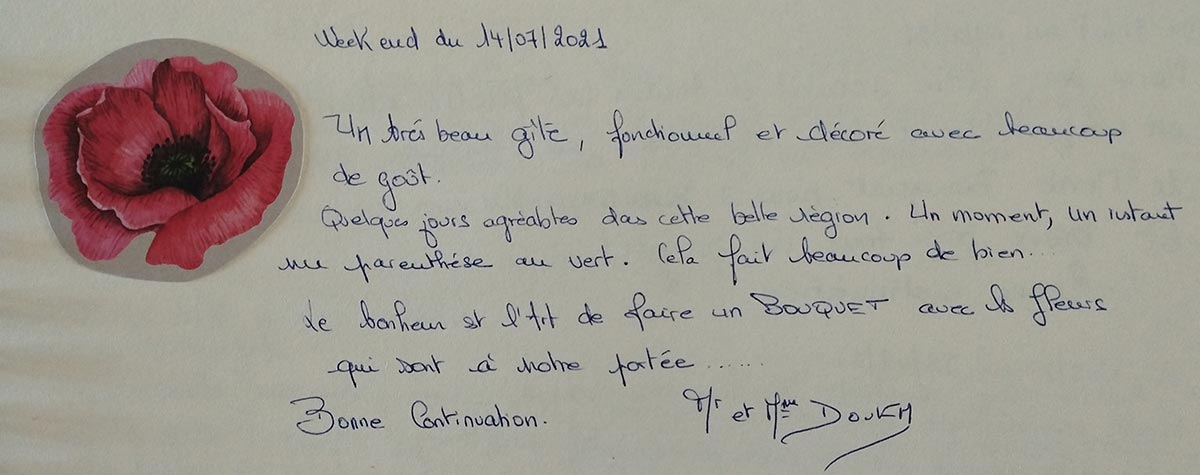 Week end du 14/07/2021
Un très beau gîte, fonctionnel et décoré avec beaucoup
de goût.
Quelques jours agréables das cette belle région. Un moment, un instant
une parenthése au vert. Cela fait beaucoup de bien...
Le bonheur est l'Art de faire un BOUQUET avec les fleurs
qui sont à notre portée......
Bonne Continuation. Mr et Mme DOUKH